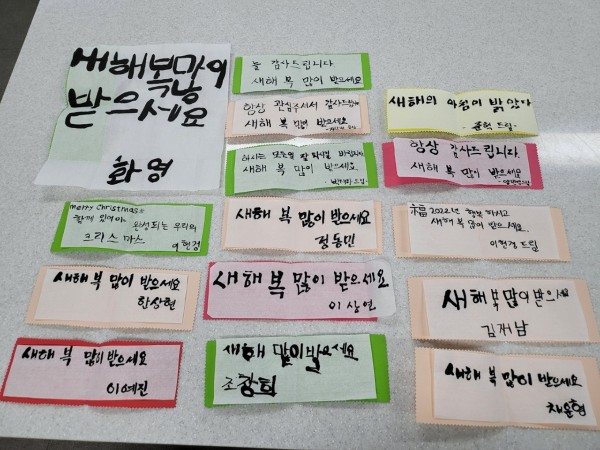 새해복많이
받으세요
화영
늘 감사드립니다.
새해 복 많이 받으세요
항상 관심주셔서 감사드립니다
새해 복 많이 받으세요
하시는 모든일 잘 되시길 바랍니다.
새해 복 많이 받으세요.
새해의 아침이 밝았다
드림-
항상 감사드립니다.
새해 복 많이 받으세요
merry christmas
함께 있어야
완성되는 우리의
크리스마스
이현경
새해 복 많이 받으세요
정동민
福 2022년 행복 하시고
새해 복 많이 받으세요.
이현경 드림
새해 복 많이 받으세요
한상현
새해 복 많이 받으세요
이상연
새해 복 많이 받으세요
김재남
새해 복 많이 받으세요
이예진
새해 많이 받으세요
조창희
새해 복 많이 받으세요
채운형